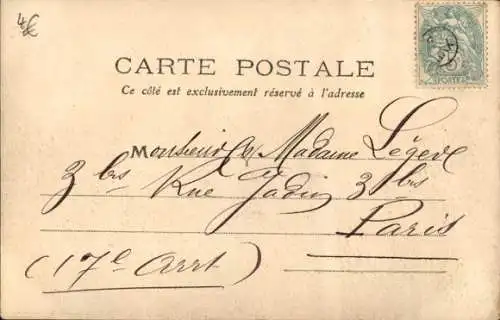 4€
CARTE POSTALE
Ce côté est exclusivement réservé à l'adresse
Monsieur & Madame Légeve
3 bis Rue Jadin 3 bis
Paris
(17e Arrt)
POSTES